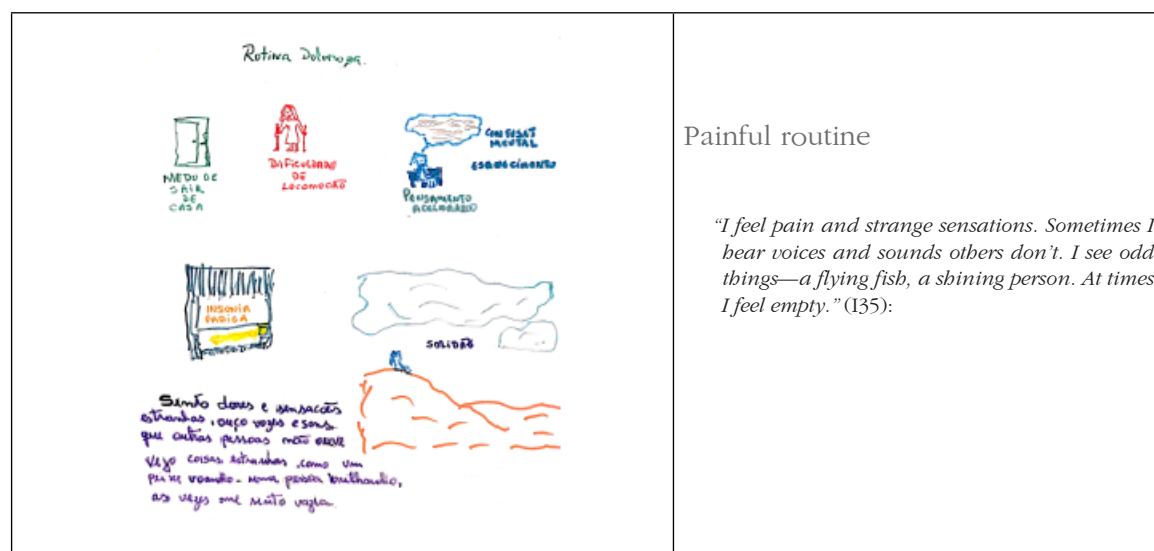 Rotina Dolorosa.
MEDO DE
SAIR
DE
CASA
DIFICULDADE
DE
LOCOMOÇÃO
MENTAL
ESQUECIMENTO
PENSAMENTO
ACELERADO
INSONIA
FADIGA
SOLIDÃO
Sinto dores e sensações
estranhas, ouço vozes e sons
que outras pessoas não ouve
vejo coisas estranhas como um
peixe voando. uma pessoa brilhando,
as vezes me sinto vazia.
Painful routine
“I feel pain and strange sensations. Sometimes I
hear voices and sounds others don’t. I see odd
things—a flying fish, a shining person. At times
I feel empty.” (I35):